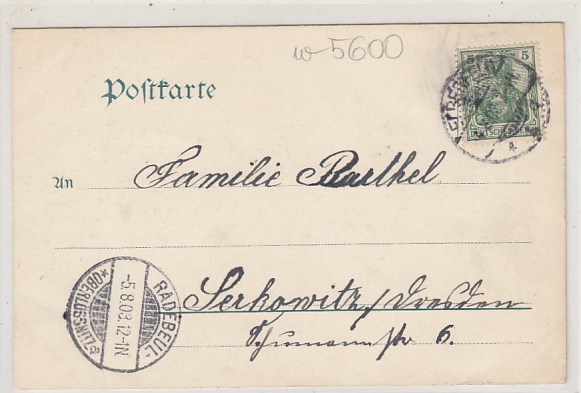 w-5600
Postkarte
5
An Familie Barthel
Serkowitz/Dresden
Schumannstr 6.
RADEBEUL-
-5.8.03.12-1N
*OBERLÖSSNITZ